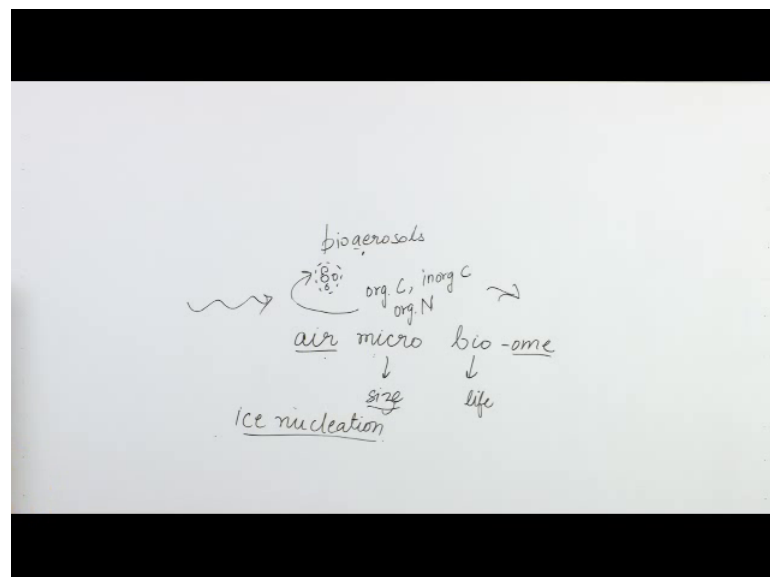 bioaerosols
org. C, inorg C
org. N
air micro bio -ome
size life
Ice nucleation